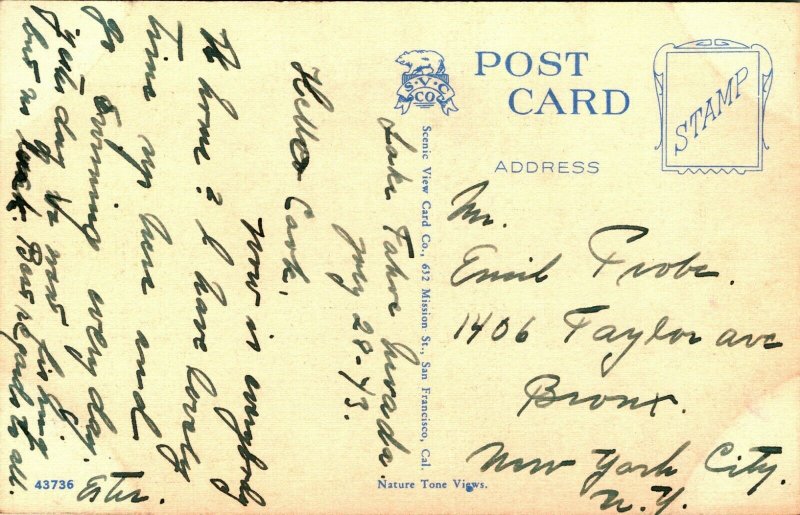 Lake Tahoe Nevada.
July 28-43.
Hello Cook,
How is everybody
at home? I have lovely
time up here and
go swimming every day.
Yesterday we went fishing
but no luck. Best regards to all.
Ester.
43736
S.V.C. CO.
Scenic View Card Co., 632 Mission St., San Francisco, Cal.
Nature Tone Views.
POST CARD
STAMP
ADDRESS
Mr.
Emil Frobe.
1406 Taylor ave
Bronx.
New York City.
N.Y.